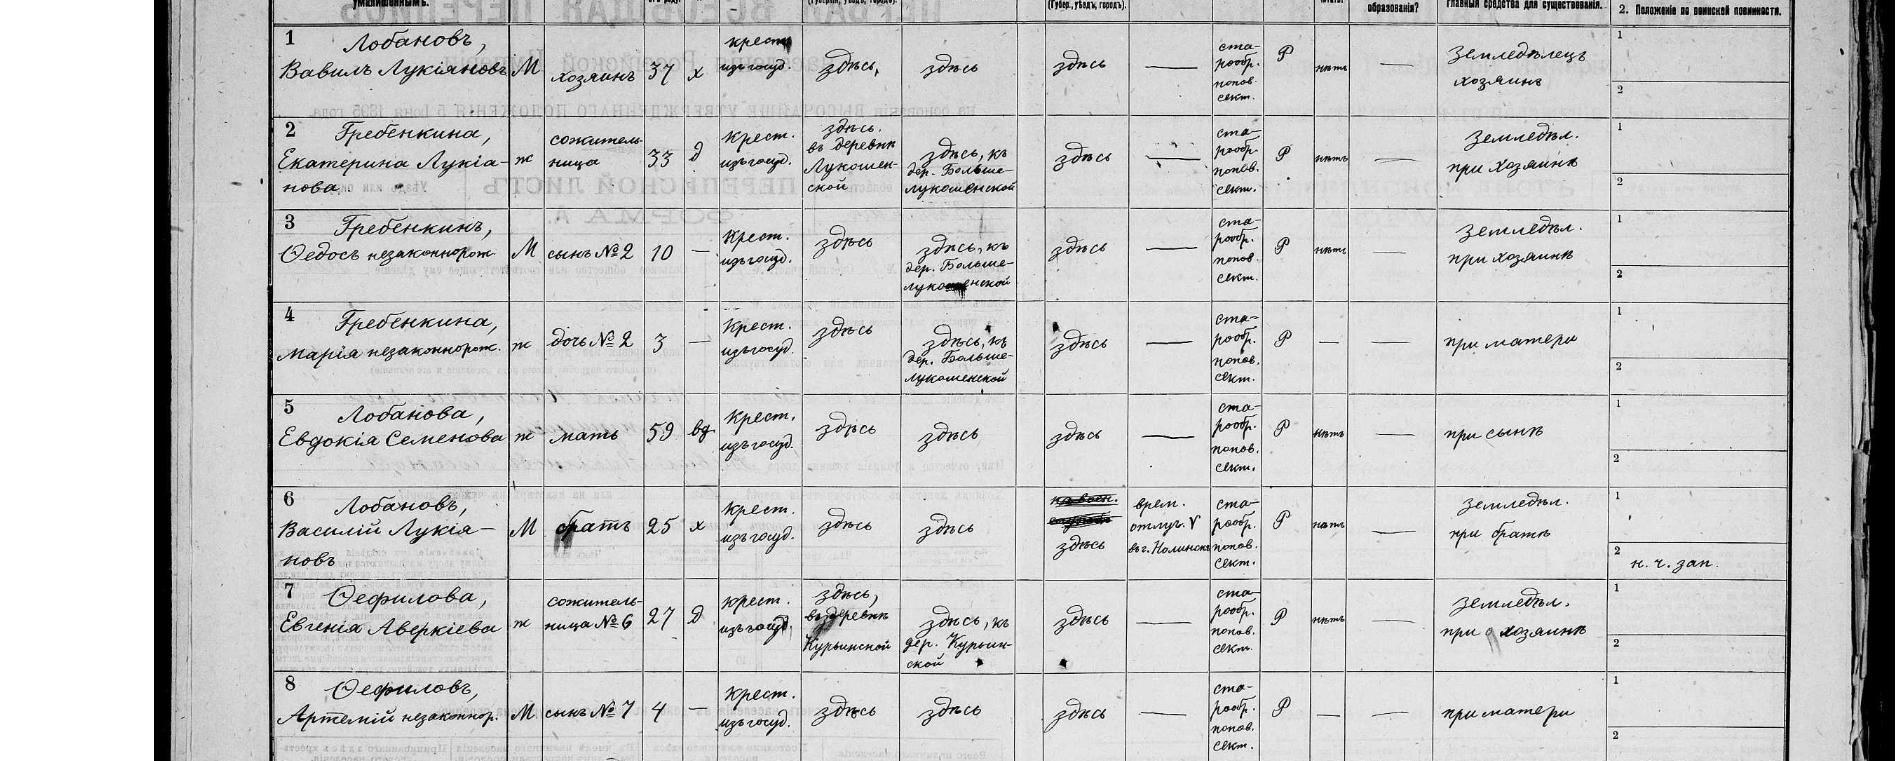 умалишеннымъ.
(Губер., уѣздъ, городъ).
образованія?
главныя средства для существованія.
2. Положеніе по воинской повинности.
1 Лобановъ,
Вавилъ Лукіяновъ М хозяинъ 37 х крест. изъ госуд. здѣсь, здѣсь здѣсь — старообр. попов. сект. Р нѣтъ — Земледѣлецъ хозяинъ 1 2
2 Гребенкина,
Екатерина Лукіа-
нова ж сожитель-
ница 33 д Крест. изъ госуд. здѣсь. въ деревнѣ Лукошен-
ской здѣсь, къ дер. Больше-
лукошенской здѣсь — ста-
рообр. попов. сект. Р нѣтъ — Земледѣл. при хозяинѣ 1 2
3 Гребенкинъ,
Ѳедосъ незаконнорож. М сынъ №2 10 — Крест. изъ госуд. здѣсь здѣсь, къ дер. Больше-
лукошенской здѣсь — ста-
рообр. попов. сект. Р нѣтъ — Земледѣл. при хозяинѣ 1 2
4 Гребенкина,
Марія незаконнорож. ж дочь №2 3 — Крест. изъ госуд. здѣсь здѣсь, къ дер. Больше-
лукошенской здѣсь ста-
рообр. попов. сект. Р — — при матери 1 2
5 Лобанова,
Евдокія Семенова ж мать 59 вд Крест. изъ госуд. здѣсь здѣсь здѣсь — ста-
рообр. попов. сект. Р нѣтъ — при сынѣ 1 2
6 Лобановъ,
Василій Лукія-
новъ М братъ 25 х Крест. изъ госуд. здѣсь здѣсь здѣсь врем. отлуч. V въ г. Нолинскъ ста-
рообр. попов. сект. Р нѣтъ — Земледѣл. при братѣ 1 2 н. ч. зап.
7 Ѳефилова,
Евгенія Аверкіева ж сожитель-
ница №6 27 Д крест. изъ госуд. здѣсь, въ деревнѣ Курьинской здѣсь, къ дер. Курьин-
ской здѣсь — ста-
рообр. попов. сект. Р нѣтъ — Земледѣл. при хозяинѣ 1 2
8 Ѳефиловъ,
Артемій незаконнор. М сынъ №7 4 — Крест. изъ госуд. здѣсь здѣсь здѣсь — ста-
рообр. попов. сект. Р — — при матери 1 2